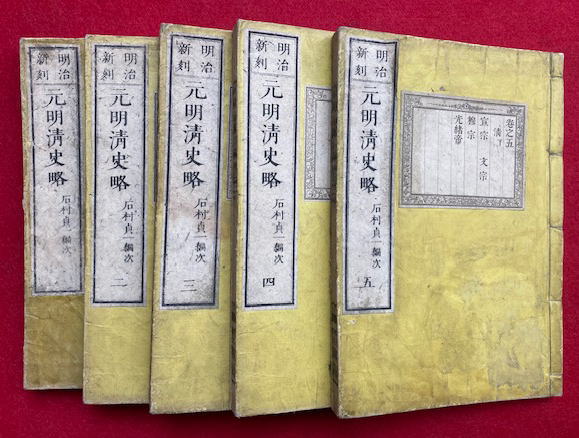 明治
新刻
元明清史略
石村貞一編次
明治
新刻
元明清史略
石村貞一編次
二
明治
新刻
元明清史略
石村貞一編次
三
明治
新刻
元明清史略
石村貞一編次
四
明治
新刻
元明清史略
石村貞一編次
五
卷之五
清下
宣宗 文宗
穆宗
光緒帝